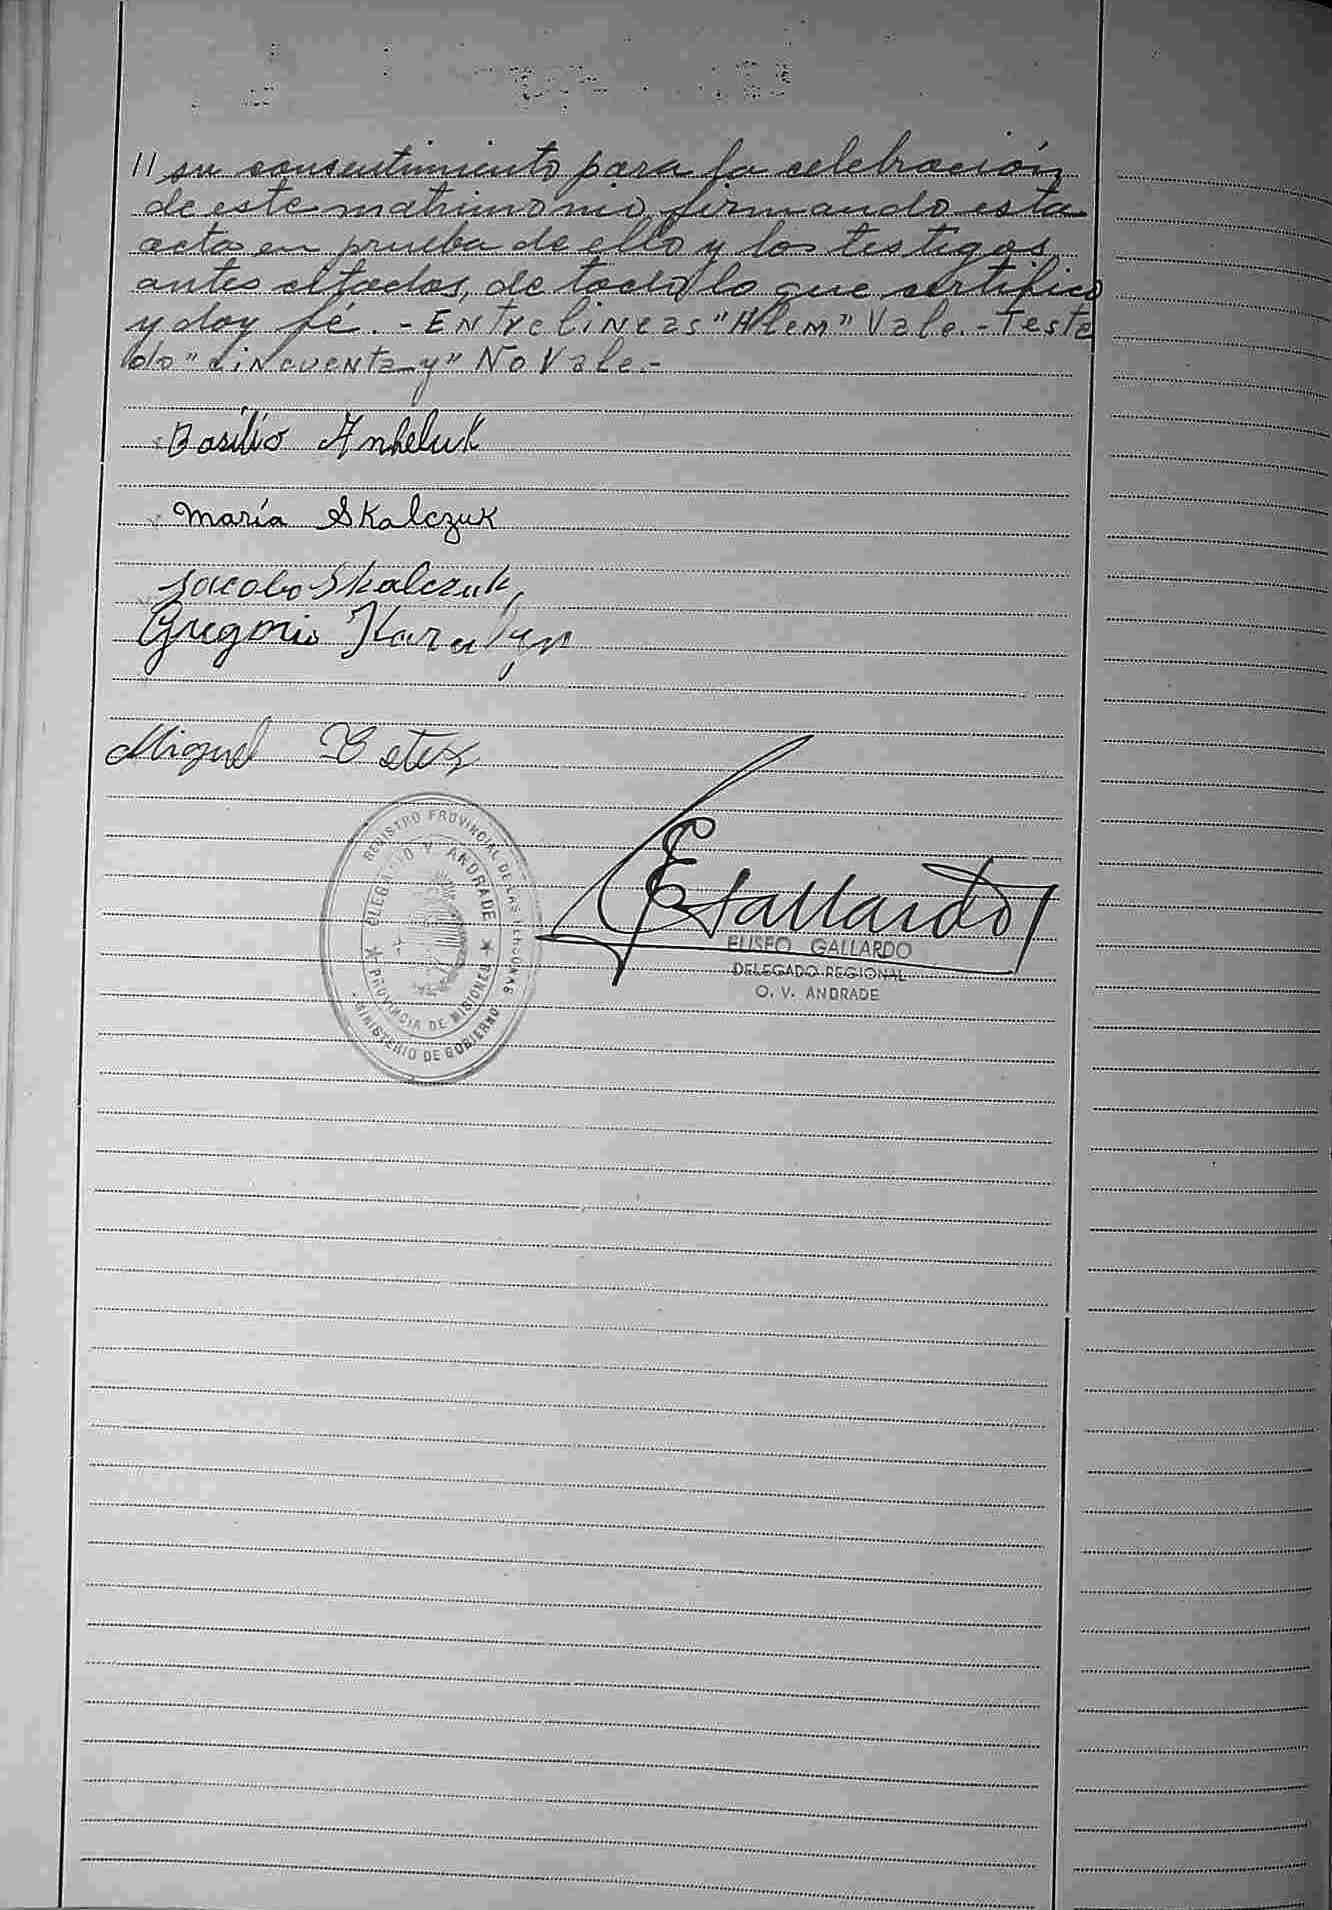 // su consentimiento para la celebración
de este matrimonio, firmando esta
acta en prueba de ello y los testigos
antes citados, de todo lo que certifico
y doy fé. - Entrelineas "Alem" Vale. - Testa
do "cincuenta y" No Vale. -
Basilio Anheluk
María Skalczuk
Jacobo Skalczuk
Gregorio
Miguel
REGISTRO PROVINCIAL DE LAS PERSONAS
OLEGARIO V. ANDRADE
PROVINCIA DE MISIONES
MINISTERIO DE GOBIERNO
EGallardo
ELISEO GALLARDO
DELEGADO REGIONAL
O. V. ANDRADE